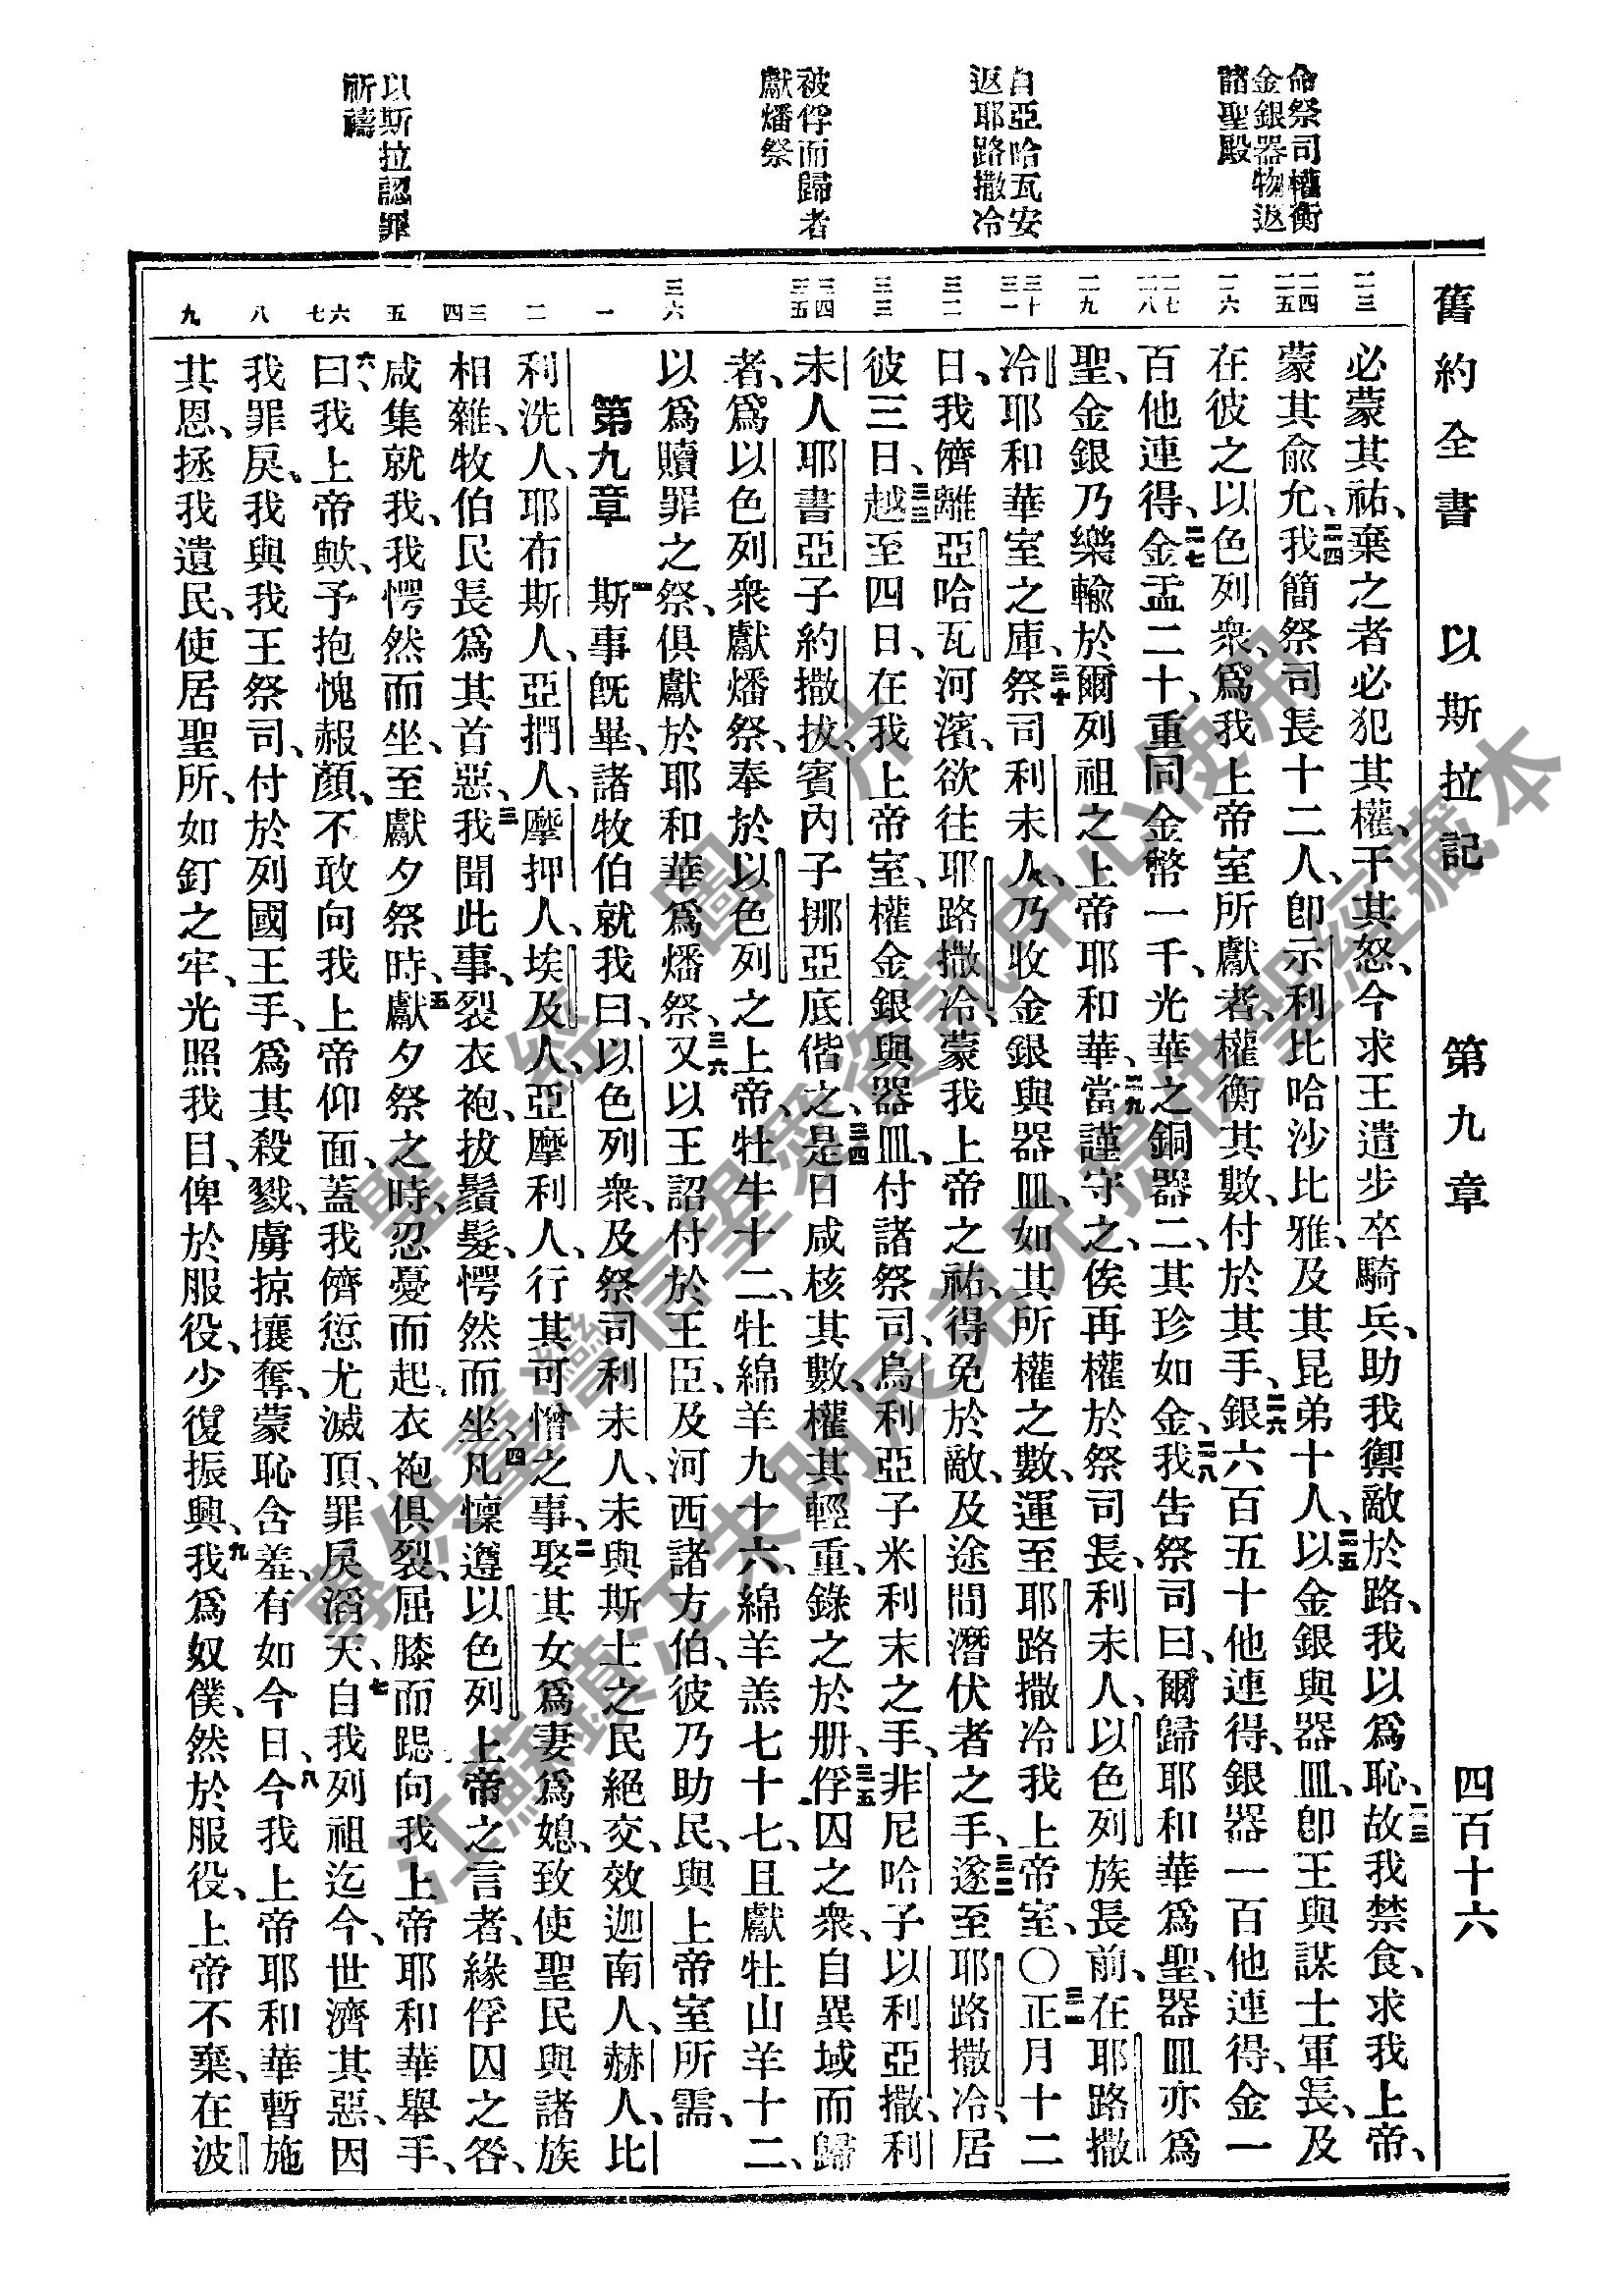 舊約全書　以斯拉記　第九章　四百十六
命祭司權衡
金銀器物返
諸聖殿
自亞哈瓦安
返耶路撒冷
被俘而歸者
獻燔祭
以斯拉認罪
祈禱
二三
二四 二五
二六
二七 二八
二九
三十 三一
三二
三三
三四 三五
三六
一
二
三 四
五
六 七
八
九
必蒙其祐、棄之者必犯其權、干其怒、今求王遣步卒騎兵、助我禦敵於路、我以爲恥、二三故我禁食、求我上帝、
蒙其兪允、二四我簡祭司長十二人、卽示利比哈沙比雅、及其昆弟十人、二五以金銀與器皿、卽王與謀士軍長、及
在彼之以色列衆、爲我上帝室所獻者、權衡其數、付於其手、二六銀六百五十他連得、銀器一百他連得、金一
百他連得、二七金盂二十、重同金幣一千、光華之銅器二、其珍如金、二八我告祭司曰、爾歸耶和華爲聖、器皿亦爲
聖、金銀乃樂輸於爾列祖之上帝耶和華、二九當謹守之、俟再權於祭司長、利未人、以色列族長前、在耶路撒
冷耶和華室之庫、三十祭司利未人、乃收金銀與器皿、如其所權之數、運至耶路撒冷我上帝室、○三一正月十二
日、我儕離亞哈瓦河濱、欲往耶路撒冷、蒙我上帝之祐、得免於敵、及途間潛伏者之手、三二遂至耶路撒冷、居
彼三日、三三越至四日、在我上帝室、權金銀與器皿、付諸祭司、烏利亞子米利末之手、非尼哈子以利亞撒、利
未人耶書亞子約撒拔、賓內子挪亞底偕之、三四是日咸核其數、權其輕重、錄之於册、三五俘囚之衆、自異域而歸
者、爲以色列衆獻燔祭、奉於以色列之上帝、牡牛十二、牡綿羊九十六、綿羊羔七十七、且獻牡山羊十二、
以爲贖罪之祭、俱獻於耶和華爲燔祭、三六又以王詔付於王臣、及河西諸方伯、彼乃助民、與上帝室所需、
第九章　一斯事旣畢、諸牧伯就我曰、以色列衆、及祭司利未人、未與斯土之民絕交、效迦南人、赫人、比
利洗人、耶布斯人、亞捫人、摩押人、埃及人、亞摩利人、行其可憎之事、二娶其女爲妻爲媳、致使聖民與諸族
相雜、牧伯民長爲其首惡、三我聞此事、裂衣袍、拔鬚髮、愕然而坐、四凡懍遵以色列上帝之言者、緣俘囚之咎、
咸集就我、我愕然而坐、至獻夕祭時、五獻夕祭之時、忍憂而起、衣袍俱裂、屈膝而跽、向我上帝耶和華舉手、
六曰、我上帝歟、予抱愧赧顏、不敢向我上帝仰面、蓋我儕愆尤滅頂、罪戾滔天、七自我列祖迄今、世濟其惡、因
我罪戾、我與我王祭司、付於列國王手、爲其殺戮、虜掠攘奪、蒙恥含羞、有如今日、八今我上帝耶和華暫施
其恩、拯我遺民、使居聖所、如釘之牢、光照我目、俾於服役、少復振興、九我爲奴僕、然於服役、上帝不棄、在波
聖經圖片
專供臺灣信望愛資訊中心使用
江蘇鎮江朱明辰弟兄提供聖經藏本